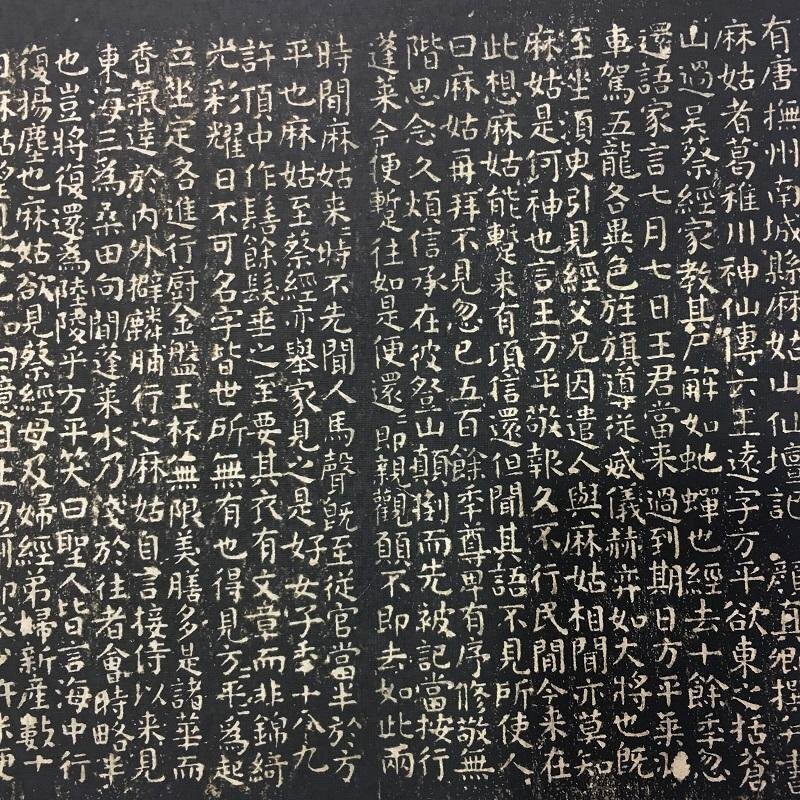 有唐撫州南城縣麻姑山仙壇記　顏真卿撰并書
麻姑者葛稚川神仙傳云王遠字方平欲東之括蒼
山過吳蔡經家教其尸解如虵蟬也經去十餘季忽
還語家言七月七日王君當来過到期日方平乘
車駕五龍各異色旌旗導從威儀赫弈如大將也既
至坐須臾引見經父兄因遣人與麻姑相聞亦莫知
麻姑是何神也言王方平敬報久不行民間今来在
此想麻姑能蹔来有頃信還但聞其語不見所使人
曰麻姑再拜不見忽已五百餘季尊卑有序修敬無
階思念久煩信承在彼登山顛倒而先被記當按行
蓬萊今便蹔往如是便還還即親覲願不即去如此兩
時間麻姑来来時不先聞人馬聲既至從官當半於方
平也麻姑至蔡經亦舉家見之是好女子季十八九
許頂中作髻餘髮垂之至要其衣有文章而非錦綺
光彩耀日不可名字皆世所無有也得見方平方平為起
立坐定各進行廚金盤玉杯無限美膳多是諸華而
香氣達於內外擗麟脯行之麻姑自言接侍以来見
東海三為桑田向間蓬萊水乃淺於往者會時略半
也豈將復還為陸陵乎方平笑曰聖人皆言海中行
復揚塵也麻姑欲見蔡經母及婦經弟婦新産數十
日麻姑望見之已知曰噫且止勿前即求少許米便